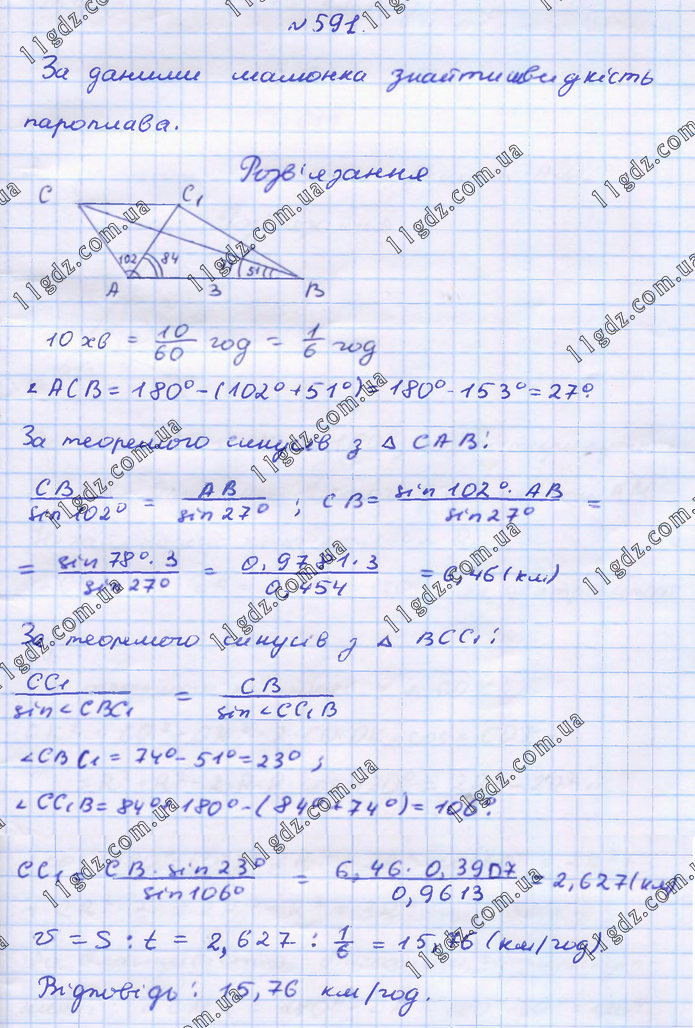 №591.
За даними малюнка знайти швидкість
пароплава.
Розв'язання
C C₁
102 84 51
A 3 B
10 хв = 10/60 год = 1/6 год
∠ACB = 180° - (102° + 51°) = 180° - 153° = 27°.
За теоремою синусів з △ CAB:
CB/sin 102° = AB/sin 27° ; CB = sin 102° · AB/sin 27° =
= sin 78° · 3/sin 27° = 0,9781 · 3/0,454 = 6,46 (км)
За теоремою синусів з △ BCC₁:
CC₁/sin∠CBC₁ = CB/sin∠CC₁B
∠CBC₁ = 74° - 51° = 23° ;
∠CC₁B = 84° + 180° - (84° + 74°) = 106°.
CC₁ = CB · sin 23°/sin 106° = 6,46 · 0,3907/0,9613 = 2,627 (км)
v = S : t = 2,627 : 1/6 = 15,76 (км/год)
Відповідь: 15,76 км/год.
11gdz.com.ua